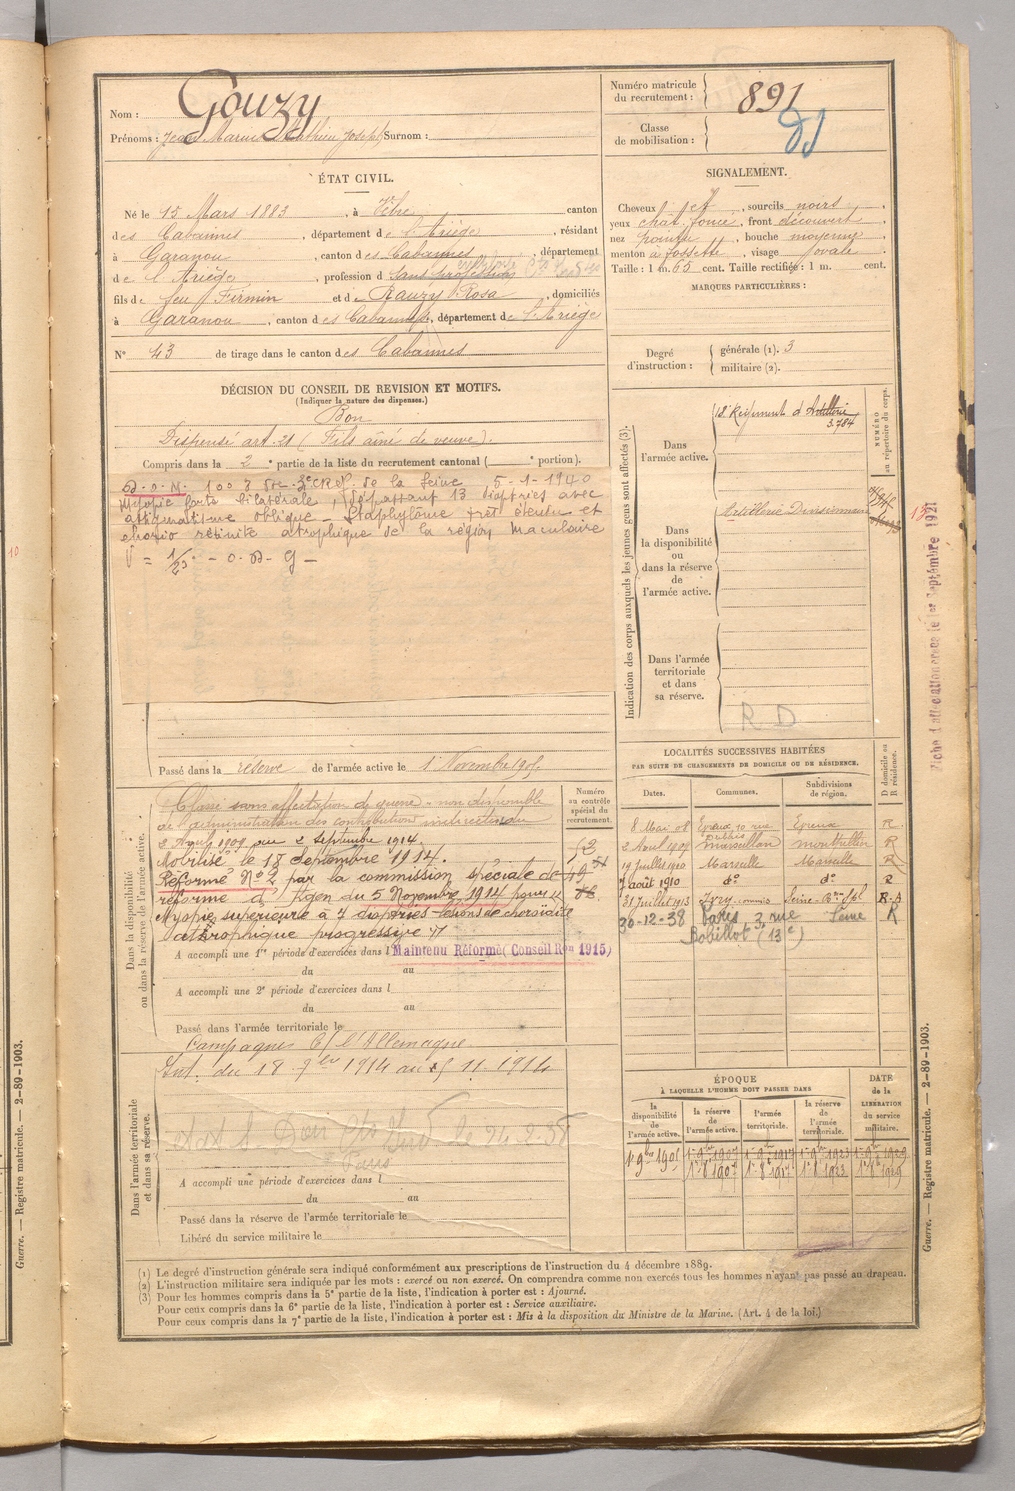 Nom : Gouzy
Prénoms : Jean Marius Mathieu Joseph Surnom :
Numéro matricule du recrutement : 891
Classe de mobilisation :
ÉTAT CIVIL.
Né le 15 Mars 1883, à Vèbre canton
des Cabannes, département de l'Ariège, résidant
à Garanou, canton des Cabannes, département
de l'Ariège, profession de Sans profession
fils de feu Firmin et de Rauzy Rosa, domiciliés
à Garanou, canton des Cabannes, département de l'Ariège
N° 43 de tirage dans le canton des Cabannes
SIGNALEMENT.
Cheveux et, sourcils noirs,
yeux chât. foncé, front découvert,
nez pointu, bouche moyenne,
menton à fossette, visage ovale.
Taille : 1 m. 65 cent. Taille rectifiée : 1 m. cent.
MARQUES PARTICULIÈRES :
Degré d'instruction : générale (1). 3
militaire (2).
DÉCISION DU CONSEIL DE REVISION ET MOTIFS.
(Indiquer la nature des dispenses.)
Bon
Dispensé art. 21 (Fils aîné de veuve).
Compris dans la 2e partie de la liste du recrutement cantonal ( e portion).
3e CRéf. de la Seine 5-1-1940
Myopie forte bilatérale, dépassant 13 dioptries avec
astigmatisme oblique - Staphylôme très étendu et
chorio rétinite atrophique de la région maculaire
Passé dans la réserve de l'armée active le 1 Novembre
Classé sans affectation de guerre - non disponible
de l'administration des contributions indirectes du
au 2 septembre 1914.
Mobilisé le 18 Septembre 1914.
Réformé N° 2 par la commission spéciale de
réforme d'Agen du 5 Novembre 1914 pour "
Myopie supérieure à 7 dioptries lésions de choroïdite
atrophique progressive "
A accompli une 1re période d'exercices dans l Maintenu Réformé (Conseil Ron 1915)
du au
A accompli une 2e période d'exercices dans l
du au
Passé dans l'armée territoriale le
Campagnes C/ l'Allemagne
Int. du 18 7bre 1914 au 5 11 1914
24-2-38
Paris
A accompli une période d'exercices dans l
du au
Passé dans la réserve de l'armée territoriale le
Libéré du service militaire le
Dans la disponibilité ou dans la réserve de l'armée active.
Dans l'armée territoriale et dans sa réserve.
Numéro au contrôle spécial du recrutement.
Indication des corps auxquels les jeunes gens sont affectés (3).
NUMÉRO au répertoire du corps.
Dans l'armée active.
18e Régiment d'Artillerie
3.784
Dans la disponibilité ou dans la réserve de l'armée active.
Artillerie Divisionnaire
Dans l'armée territoriale et dans sa réserve.
R D
LOCALITÉS SUCCESSIVES HABITÉES
PAR SUITE DE CHANGEMENTS DE DOMICILE OU DE RÉSIDENCE.
Dates. Communes. Subdivisions de région. D domicile ou R résidence.
8 Mai 08 Evreux, 10 rue Evreux R
2 Aout 1909 Marsillon Montpellier R
19 Juillet 1910 Marseille Marseille R
7 août 1910 d° d° R
31 Juillet 1913 Ivry Seine R
30-12-38 Paris 3, rue Seine R
Bobillot (13e)
ÉPOQUE
À LAQUELLE L'HOMME DOIT PASSER DANS
la disponibilité de l'armée active. la réserve de l'armée active. l'armée territoriale. la réserve de l'armée territoriale. DATE de la LIBÉRATION du service militaire.
1er 9bre 1907 1er 9bre 1917 1er 9bre 1923 1er 9bre 1929
(1) Le degré d'instruction générale sera indiqué conformément aux prescriptions de l'instruction du 4 décembre 1889.
(2) L'instruction militaire sera indiquée par les mots : exercé ou non exercé. On comprendra comme non exercés tous les hommes n'ayant pas passé au drapeau.
(3) Pour les hommes compris dans la 5e partie de la liste, l'indication à porter est : Ajourné.
Pour ceux compris dans la 6e partie de la liste, l'indication à porter est : Service auxiliaire.
Pour ceux compris dans la 7e partie de la liste, l'indication à porter est : Mis à la disposition du Ministre de la Marine. (Art. 4 de la loi.)
Guerre. — Registre matricule. — 2-89-1903.
Guerre. — Registre matricule. — 2-89-1903.
1er Septembre 1921
10